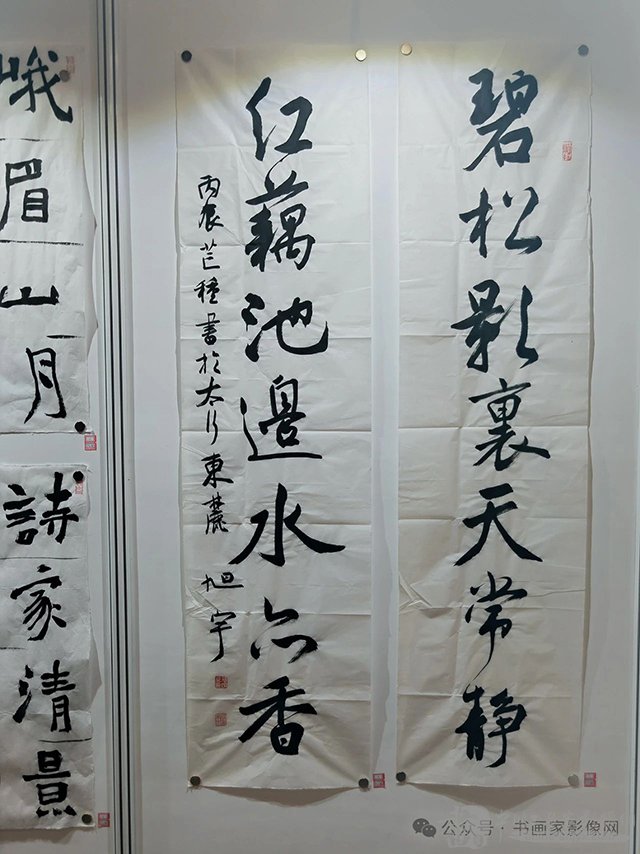 碧松影裏天常静
红藕池邊水亦香
丙辰芒種書於太行東麓 旭宇
峨眉山月
詩家清景
公众号·书画家影像网